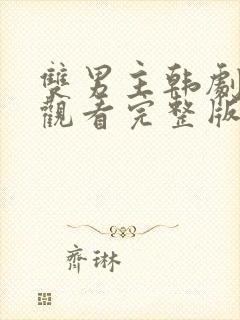 雙男主韩劇
觀看完整版
齊琳